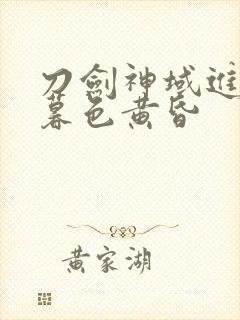 刀劍神域進
暮色黄昏
黄家湖